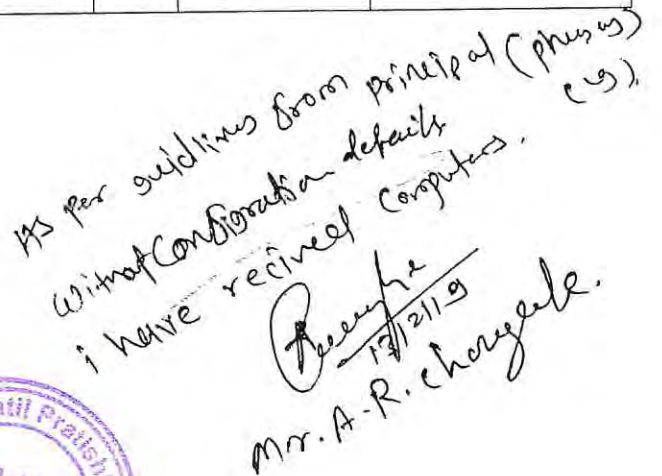 As per guidlines from principal (phusas)
(ig).
Without Configration details
i have recived computers.
17/12/19
Mr. A.R. Chougule.
atil Pratish